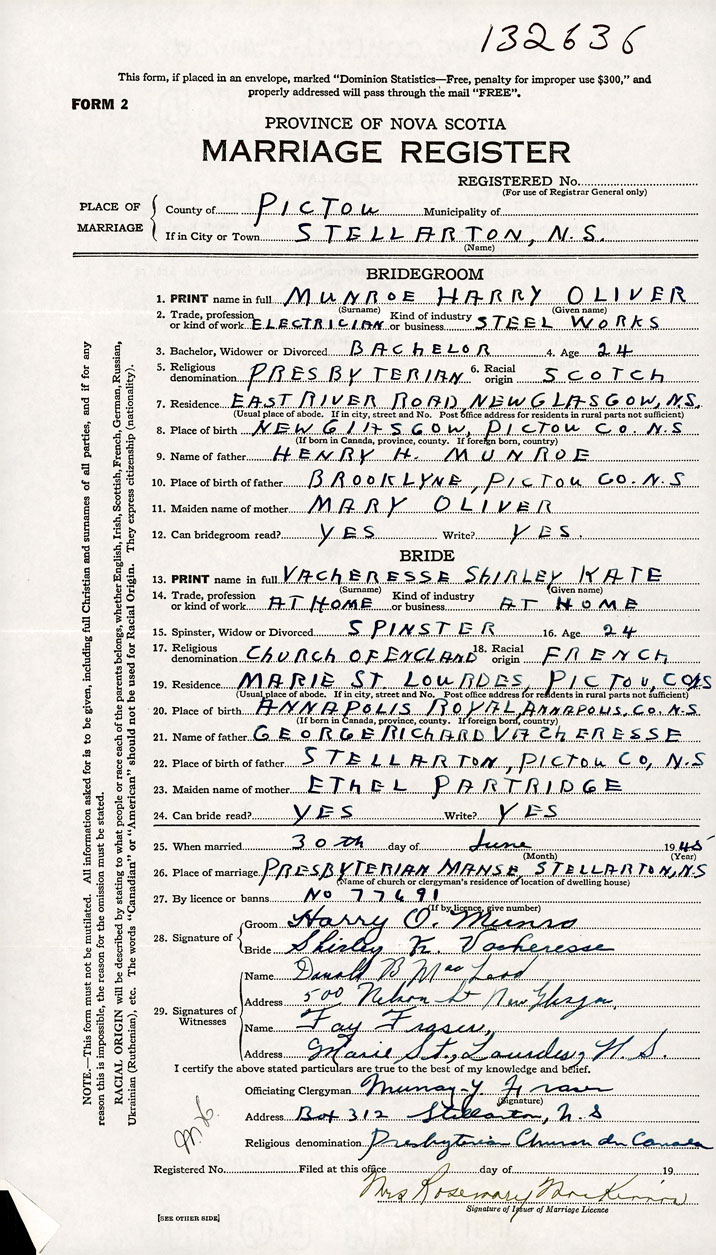 132636
This form, if placed in an envelope, marked "Dominion Statistics—Free, penalty for improper use $300," and
properly addressed will pass through the mail "FREE".
FORM 2
PROVINCE OF NOVA SCOTIA
MARRIAGE REGISTER
REGISTERED No.
(For use of Registrar General only)
PLACE OF MARRIAGE
County of PICTOU Municipality of
If in City or Town STELLARTON, N.S.
(Name)
BRIDEGROOM
1. PRINT name in full MUNROE HARRY OLIVER
(Surname) (Given name)
2. Trade, profession or kind of work ELECTRICIAN Kind of industry or business STEEL WORKS
3. Bachelor, Widower or Divorced BACHELOR 4. Age 24
5. Religious denomination PRESBYTERIAN 6. Racial origin SCOTCH
7. Residence EAST RIVER ROAD, NEW GLASGOW, N.S.
(Usual place of abode. If in city, street and No. Post office address for residents in rural parts not sufficient)
8. Place of birth NEW GLASGOW, PICTOU CO. N.S
(If born in Canada, province, county. If foreign born, country)
9. Name of father HENRY H. MUNROE
10. Place of birth of father BROOKLYNE, PICTOU CO. N.S
11. Maiden name of mother MARY OLIVER
12. Can bridegroom read? YES Write? YES.
BRIDE
13. PRINT name in full VACHERESSE SHIRLEY KATE
(Surname) (Given name)
14. Trade, profession or kind of work AT HOME Kind of industry or business AT HOME
15. Spinster, Widow or Divorced SPINSTER 16. Age 24
17. Religious denomination CHURCH OF ENGLAND 18. Racial origin FRENCH
19. Residence MARIE ST LOURDES, PICTOU, CO NS
(Usual place of abode. If in city, street and No. Post office address for residents in rural parts not sufficient)
20. Place of birth ANNAPOLIS ROYAL ANNAPOLIS, CO. N.S
(If born in Canada, province, county. If foreign born, country)
21. Name of father GEORGE RICHARD VACHERESSE
22. Place of birth of father STELLARTON, PICTOU CO, N.S
23. Maiden name of mother ETHEL PARTRIDGE
24. Can bride read? YES Write? YES
25. When married 30th day of June 1945
(Month) (Year)
26. Place of marriage PRESBYTERIAN MANSE, STELLARTON, N.S
(Name of church or clergyman's residence or location of dwelling house)
27. By licence or banns No 77691
(If by licence, give number)
28. Signature of
Groom Harry O. Munro
Bride Shirley K. Vacheresse
29. Signatures of Witnesses
Name Donald B MacLeod
Address 500 Nelson St New Glasgow,
Name Fay Fraser,
Address Marie St., Lourdes, N.S.
I certify the above stated particulars are true to the best of my knowledge and belief.
Officiating Clergyman Murray Y. Fraser
(Signature)
Address Box 312 Stellarton, N.S
Religious denomination Presbyterian Church in Canada
Registered No. Filed at this office day of 19
Mrs Rosemary MacKinnon
Signature of Issuer of Marriage Licence
[SEE OTHER SIDE]
NOTE.—This form must not be mutilated. All information asked for is to be given, including full Christian and surnames of all parties, and if for any
reason this is impossible, the reason for the omission must be stated.
RACIAL ORIGIN will be described by stating to what people or race each of the parents belongs, whether English, Irish, Scottish, French, German, Russian,
Ukrainian (Ruthenian), etc. The words "Canadian" or "American" should not be used for Racial Origin. They express citizenship (nationality).